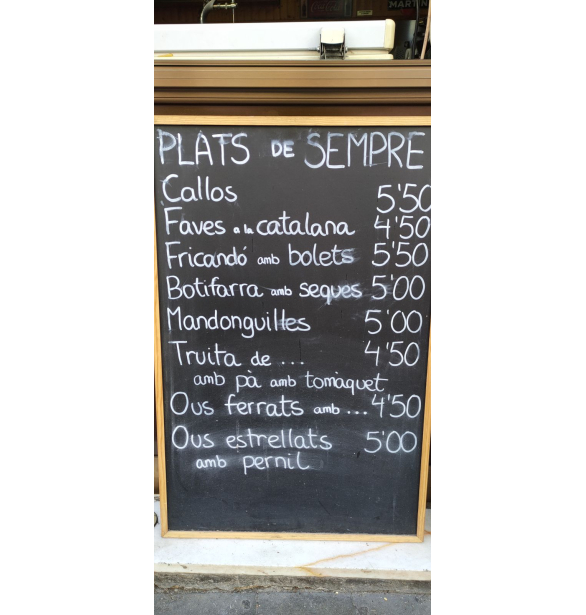 MARTIN
PLATS DE SEMPRE
Callos 5'50
Faves a la catalana 4'50
Fricandó amb bolets 5'50
Botifarra amb seques 5'00
Mandonguilles 5'00
Truita de ... 4'50
amb pà amb tomàquet
Ous ferrats amb ... 4'50
Ous estrellats 5'00
amb pernil